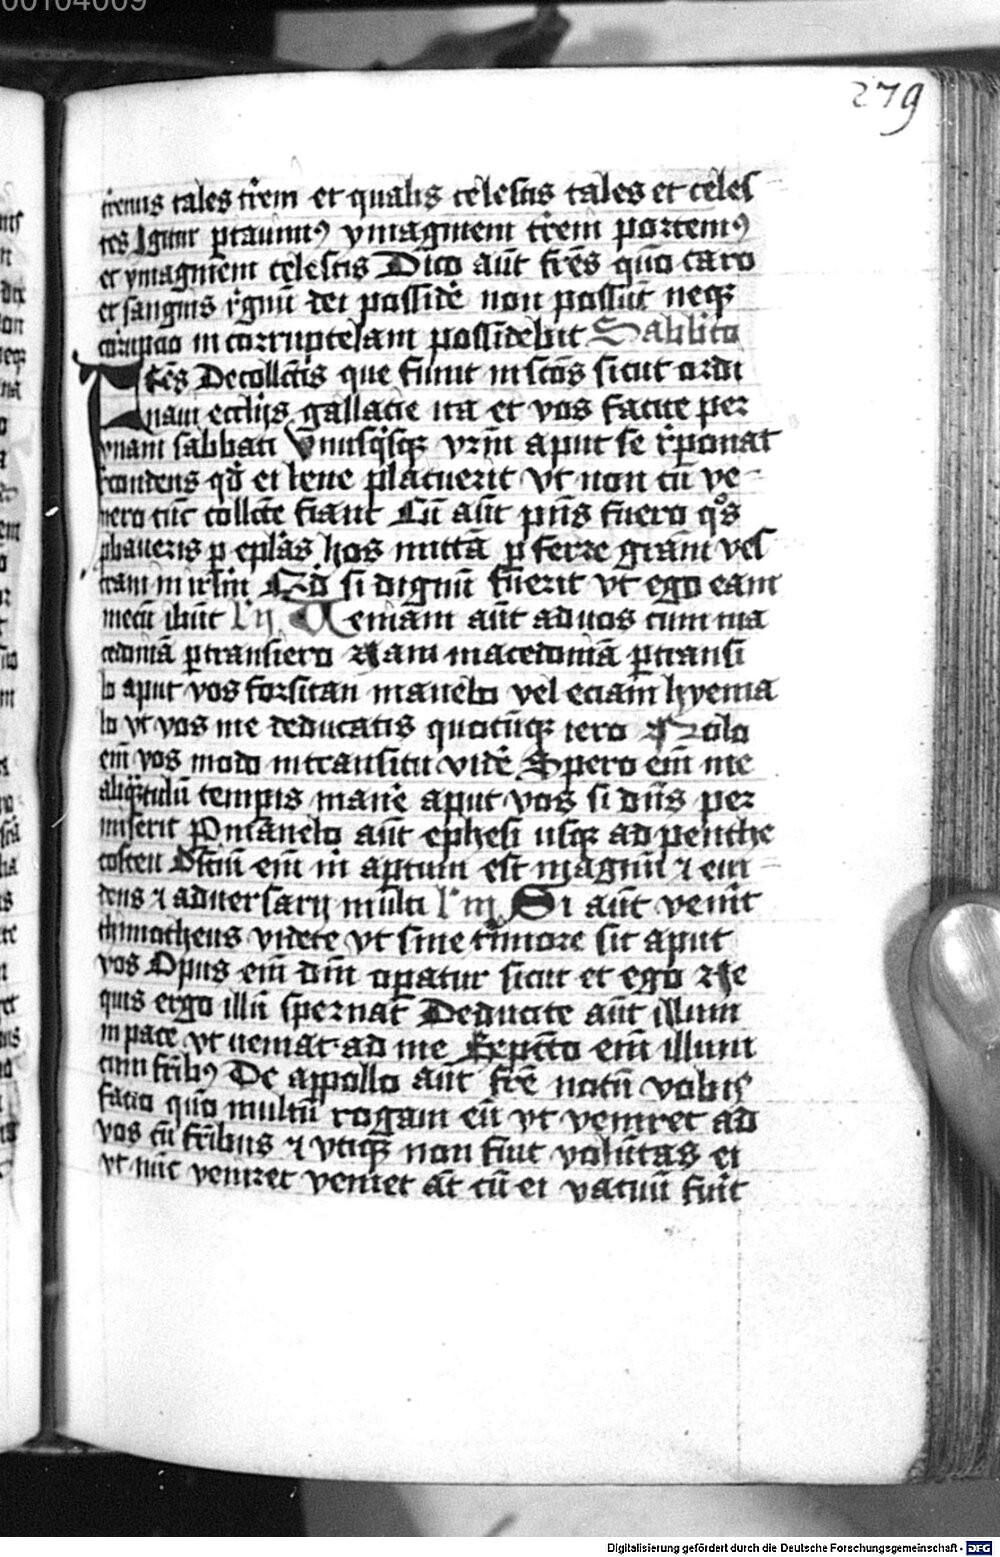 00104009
279
tr̄enus tales tr̄em et qualis celestis tales et celes
tes Igitur ꝑtauimꝰ ymaginem tr̄em portemꝰ
et ymaginem celestis Dico aūt fr̄es qūo caro
et sanguis r̄gnū dei possidē non possūt neqꝫ
corrupcio incorruptelam possidebit Sabbato
Fr̄es De collc̄tis que fiunt in sc̄os sicut ordi
naui eccl̄ijs gallacie ita et vos facite per
vnam sabbati Vnusqͥsqꝫ vr̄m aput se r̄ponat
recondens qd̄ ei bene placuerit vt non cū ve
nero tūc collc̄te fiant Cū aūt pn̄s fuero qͦs
ꝓbaueris ꝑ epl̄as hos mittā ꝑferre gr̄am ves
tram in ir̄lm̄ Qd̄ si dignū fuerit vt ego eam
mecū ibūt l' ij Ueniam aūt ad uos cum ma
cedoniā ꝑtransiero Nam macedoniā ꝑtransi
bo aput vos forsitan manebo vel eciam hyema
bo vt vos me deducatis quocūqꝫ iero Nolo
em̄ vos modo in transitu vidē Spero em̄ me
aliqͣtulū tempis manē aput vos si dn̄s per
miserit Pmanebo aūt ephesi usqꝫ ad penthe
costen Ostiū em̄ m̄ aꝑtum est magnū ⁊ eui
dens ⁊ aduersarij multi l' iij Si aūt venīt
thimotheus videte vt sine timore sit aput
vos Opus em̄ dn̄i oꝑatur sicut et ego Ne
quis ergo illū spernat Deducite aūt illum
in pace vt ueniat ad me Expecto em̄ illum
cum fr̄ibꝰ De appollo aūt fr̄e notū vobis
facio qūo multū rogaui eū vt veniret ad
vos cū fr̄ibus ⁊ vtiqꝫ non fuit volūtas ei
vt nūc veniret veniet aūt cū ei vacuū fuīt
Digitalisierung gefördert durch die Deutsche Forschungsgemeinschaft - DFG